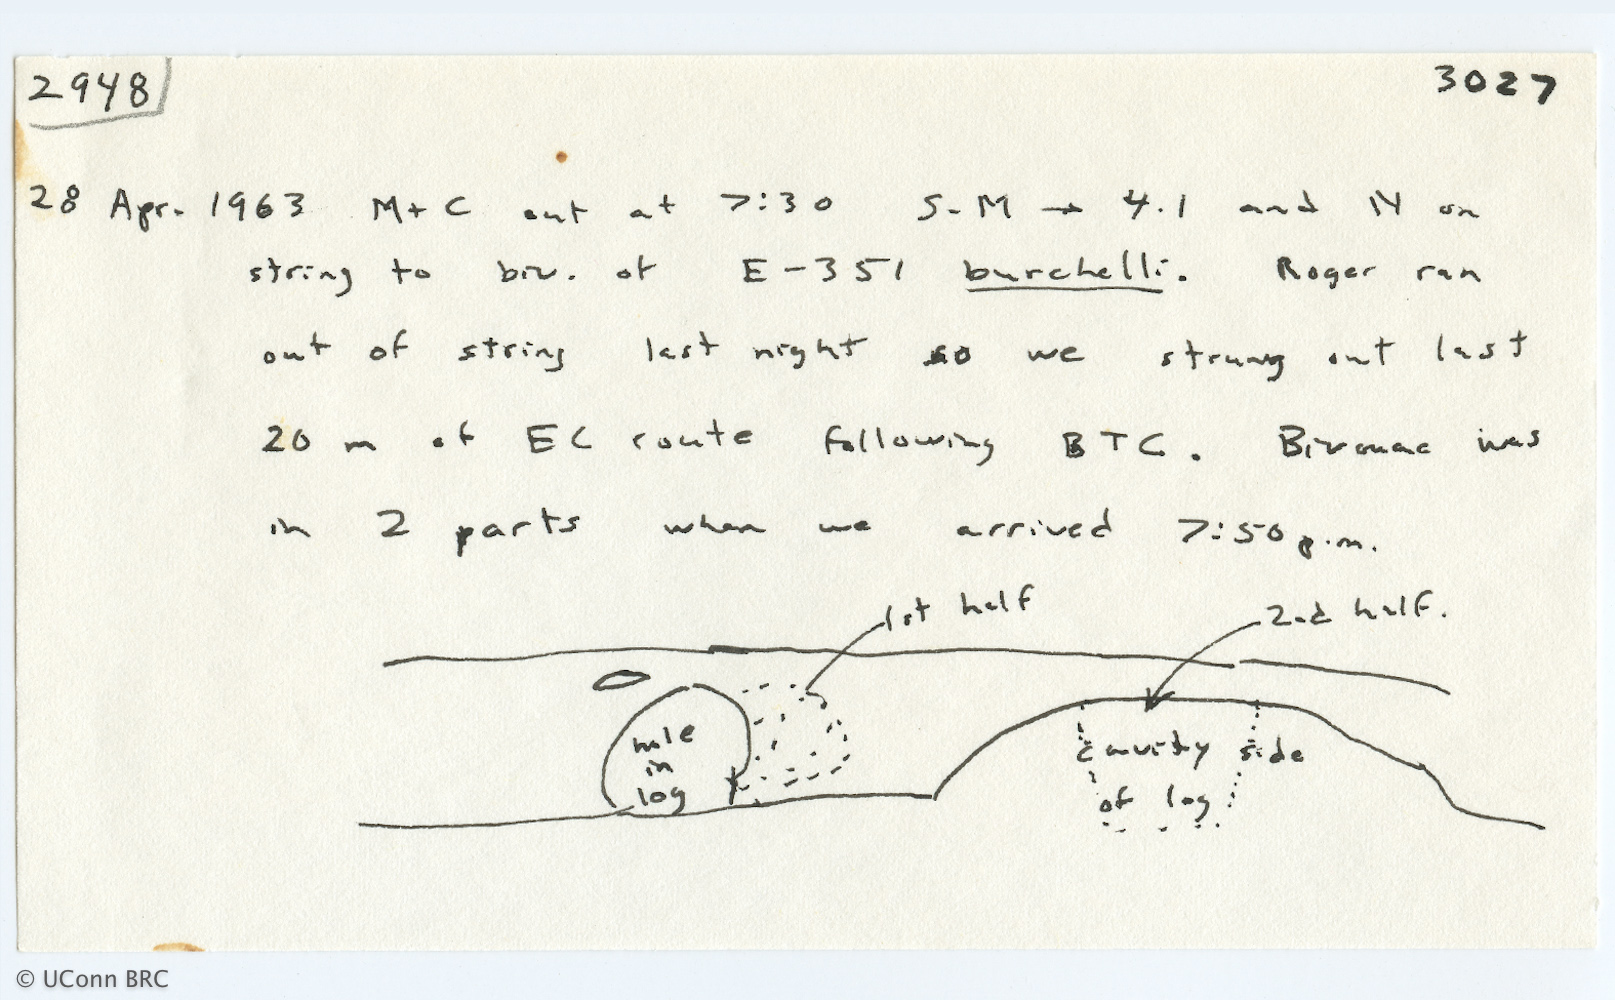 2948
3027
28 Apr. 1963 M+C out at 7:30 S-M → 4.1 and N on
string to biv. of E-351 burchelli. Roger ran
out of string last night so we strung out last
20 m of EC route following BTC. Bivouac was
in 2 parts when we arrived 7:50 p.m.
1st half
2nd half.
hole
in
log
cavity side
of log
© UConn BRC